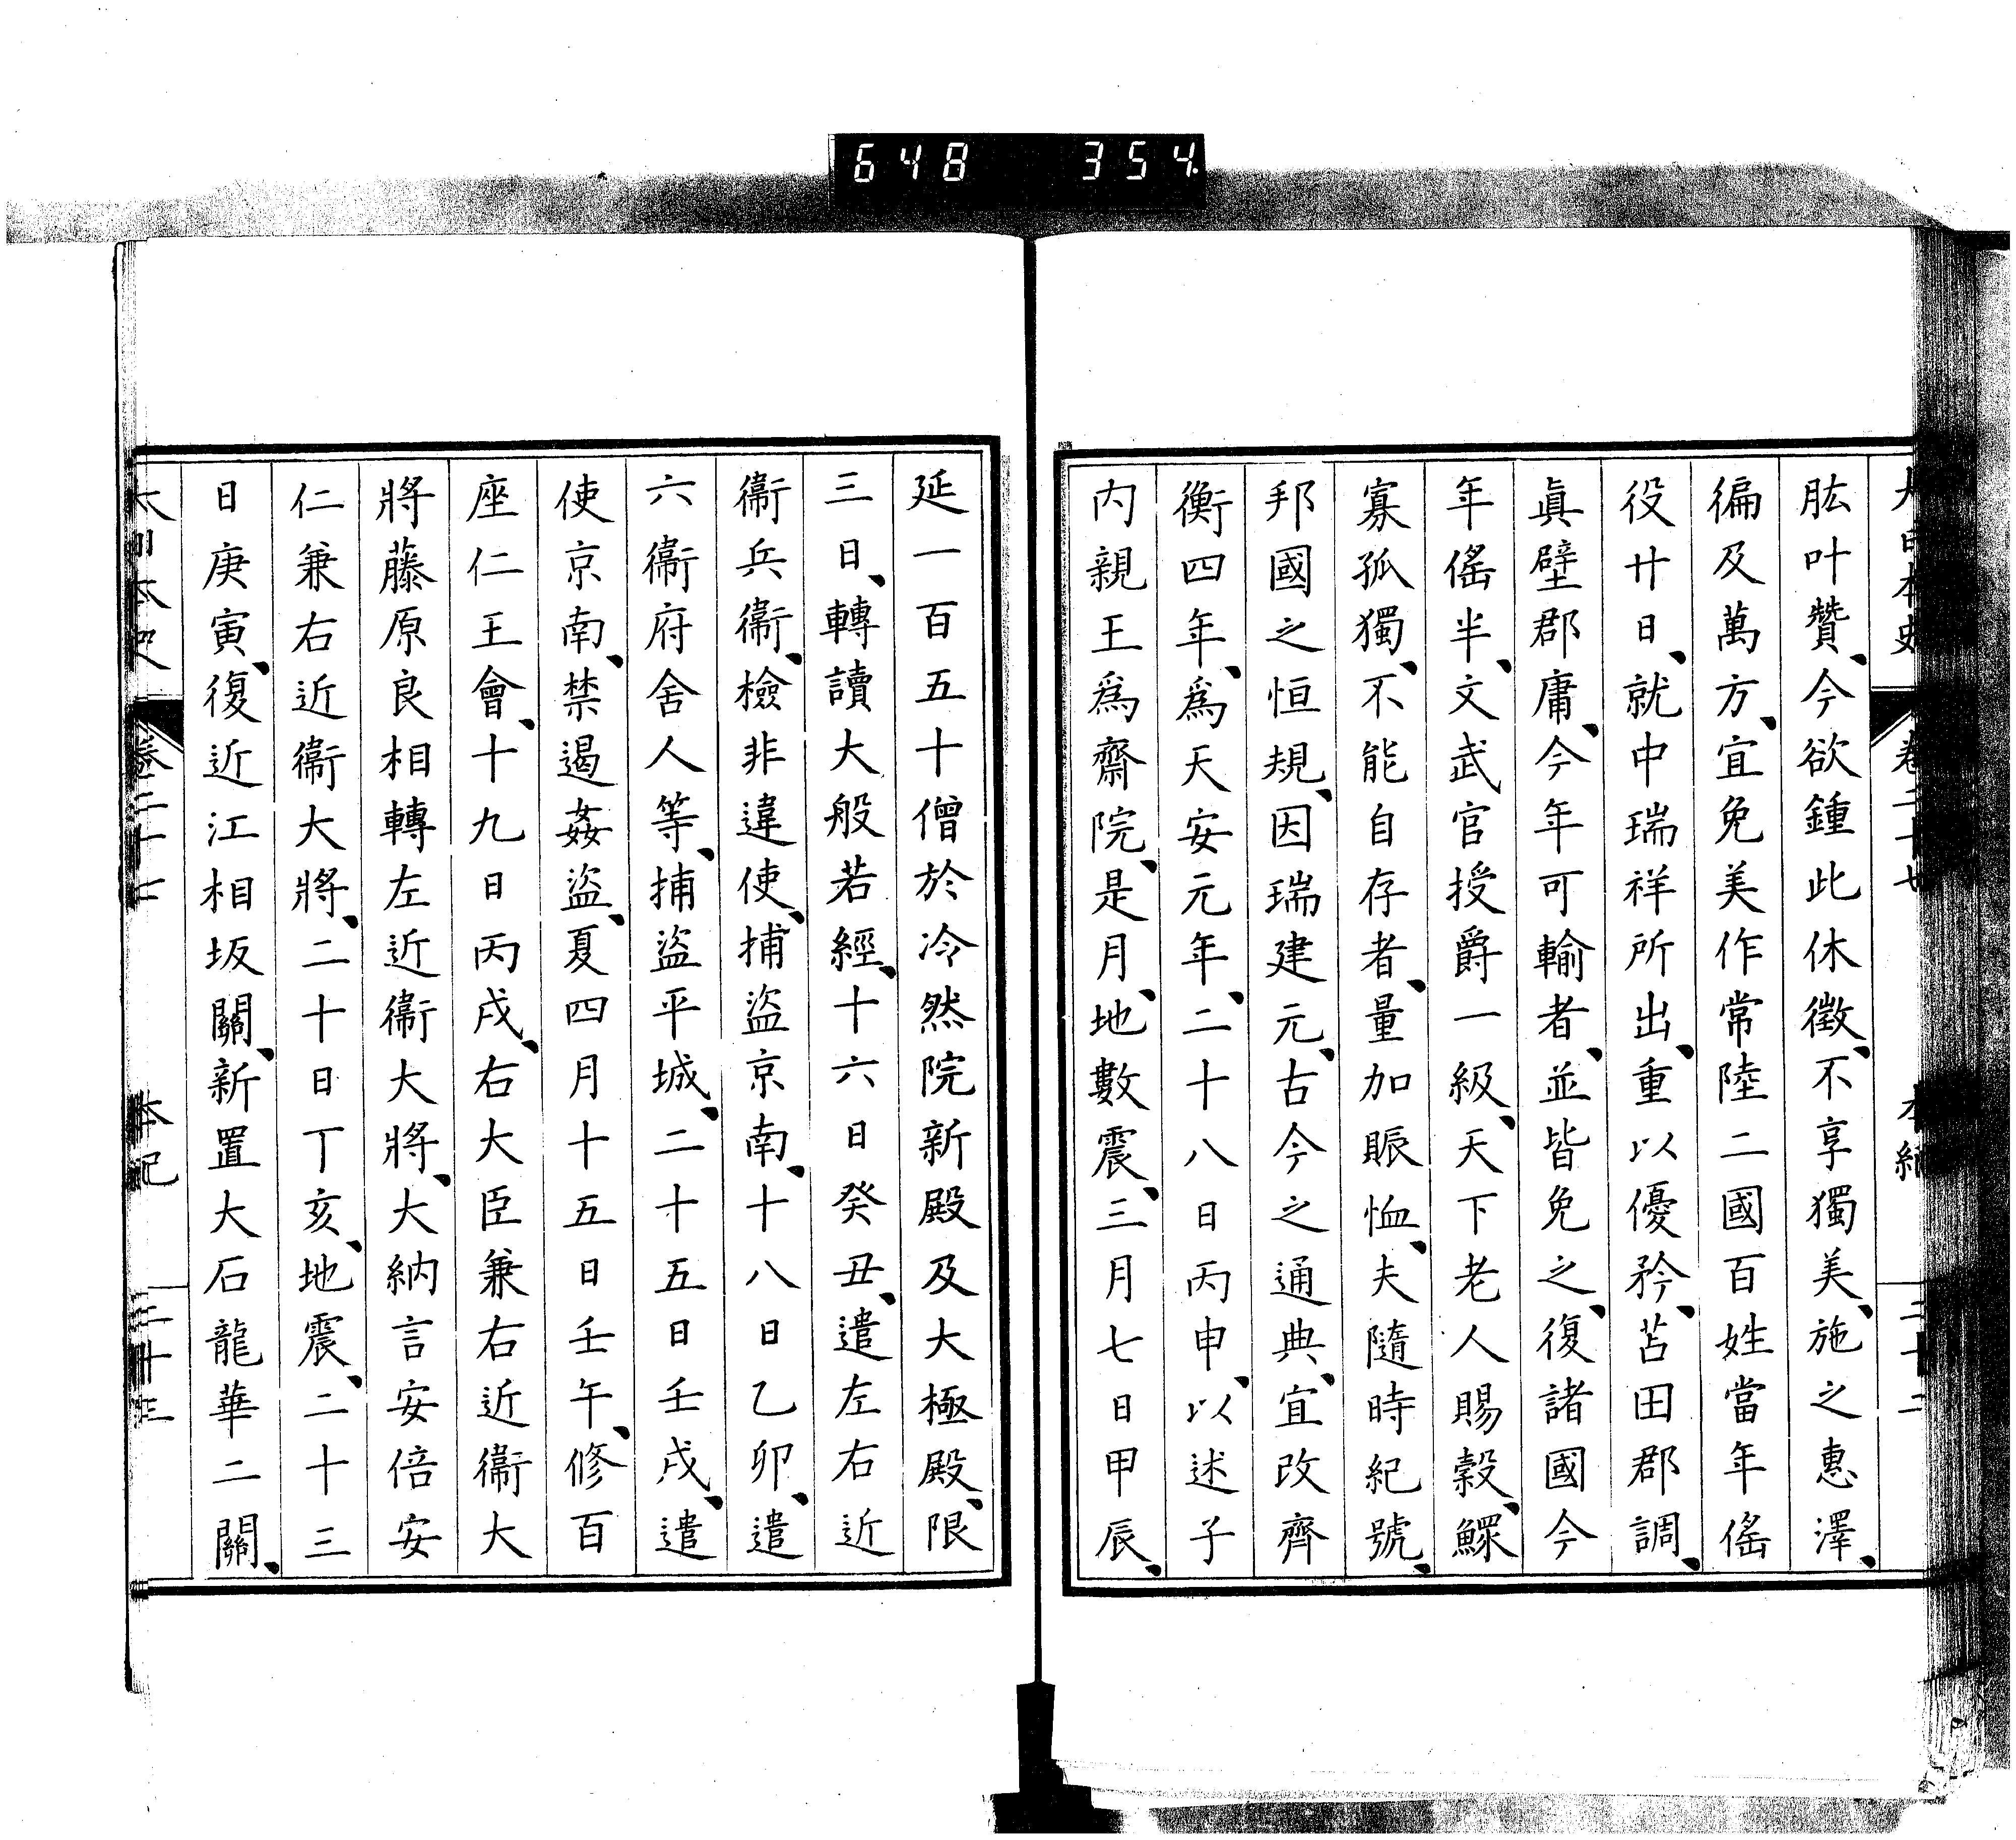 648 354
大日本史 卷二十七 本紀 二十二
肱叶贊、今欲鍾此休徵、不享獨美、施之惠澤、
徧及萬方、宜免美作常陸二國百姓當年傜
役廿日、就中瑞祥所出、重以優矜、苫田郡調、
眞壁郡庸、今年可輸者、並皆免之、復諸國今
年傜半、文武官授爵一級、天下老人賜穀、鰥
寡孤獨、不能自存者、量加賑恤、夫隨時紀號、
邦國之恒規、因瑞建元、古今之通典、宜改齊
衡四年、爲天安元年、二十八日丙申、以述子
内親王爲齋院、是月、地數震、三月七日甲辰、
延一百五十僧於冷然院新殿及大極殿、限
三日、轉讀大般若經、十六日癸丑、遣左右近
衞兵衞、檢非違使、捕盜京南、十八日乙卯、遣
六衞府舍人等、捕盜平城、二十五日壬戌、遣
使京南、禁遏姦盜、夏四月十五日壬午、修百
座仁王會、十九日丙戌、右大臣兼右近衞大
將藤原良相轉左近衞大將、大納言安倍安
仁兼右近衞大將、二十日丁亥、地震、二十三
日庚寅、復近江相坂關、新置大石龍華二關、
大日本史 卷二十七 本紀 二十三